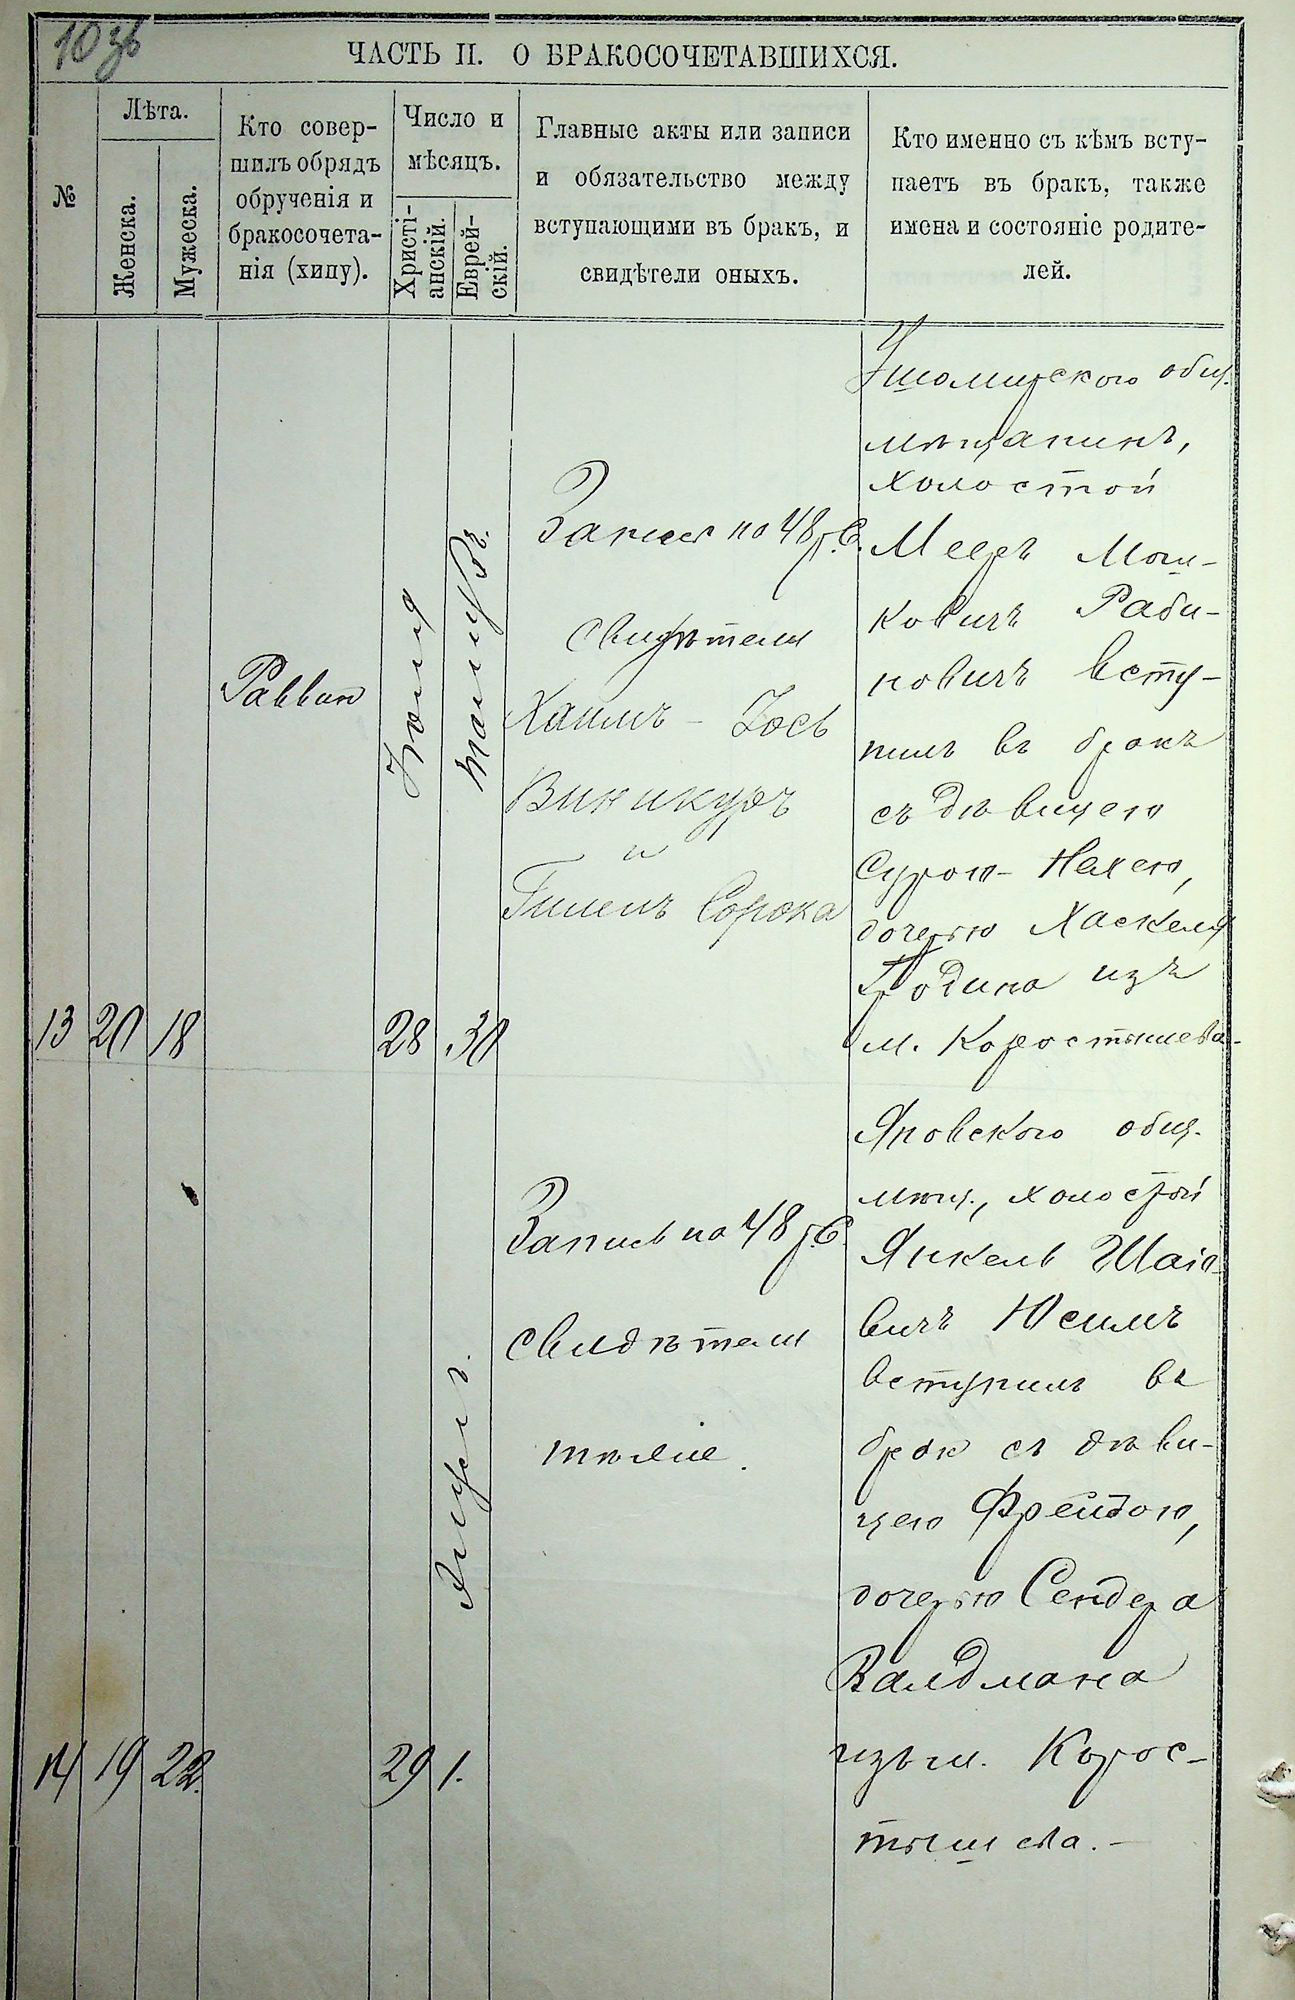 10 зв
ЧАСТЬ II. О БРАКОСОЧЕТАВШИХСЯ.
№
Лѣта.
Женска.
Мужеска.
Кто совер-
шилъ обрядъ
обрученія и
бракосочета-
нія (хипу).
Число и
мѣсяцъ.
Христі-
анскій.
Еврей-
скій.
Главные акты или записи
и обязательство между
вступающими въ бракъ, и
свидѣтели оныхъ.
Кто именно съ кѣмъ всту-
паетъ въ бракъ, также
имена и состояніе родите-
лей.
13
20
18
Раввин
Іюля
28
30
Запись на 48 р. С.
свидѣтели
Хаимъ - Іось
Виникуръ
и
Гилель Сорока
Ушомирского общ.
мѣщанинъ,
холостой
Мееръ Мош-
ковичъ Раби-
новичъ всту-
пилъ въ бракъ
съ дѣвицею
Сурою - Нехею,
дочерью Хаскеля
Гродина изъ
м. Коростышева -
14
19
22.
29
1.
Запись на 48 р. С.
свидѣтели
тѣже.
Яновского общ.
мѣщ., холостой
Янкель Шаіо-
вичъ Юсимъ
вступилъ въ
брак съ дѣви-
цею Фрейдою,
дочерью Сендера
Валдмана
изъ м. Корос-
тышева. -